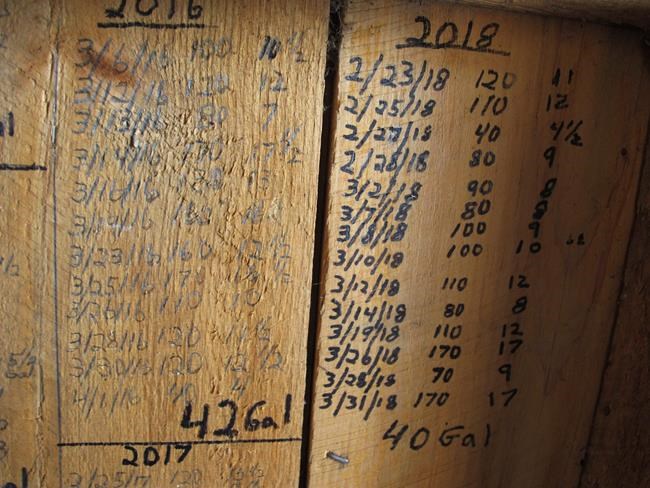 2016
3/6/16 100 10 1/2
3/12/16 120 12
3/13/16 80 7
3/14/16 170 17 1/2
3/16/16
3/19/16
3/23/16 160 12 1/2
3/25/16 170 1/2
3/26/16 110 10
3/28/16 120
3/30/16 120 12 1/2
4/1/16 40 4
42 Gal
2017
3/25/17 120
2018
2/23/18 120 11
2/25/18 110 12
2/27/18 40 4 1/2
2/28/18 80 9
3/2/18 90 8
3/7/18 80 8
3/8/18 100 9
3/10/18 100 10
3/12/18 110 12
3/14/18 80 8
3/19/18 110 12
3/26/18 170 17
3/28/18 70 9
3/31/18 170 17
40 Gal